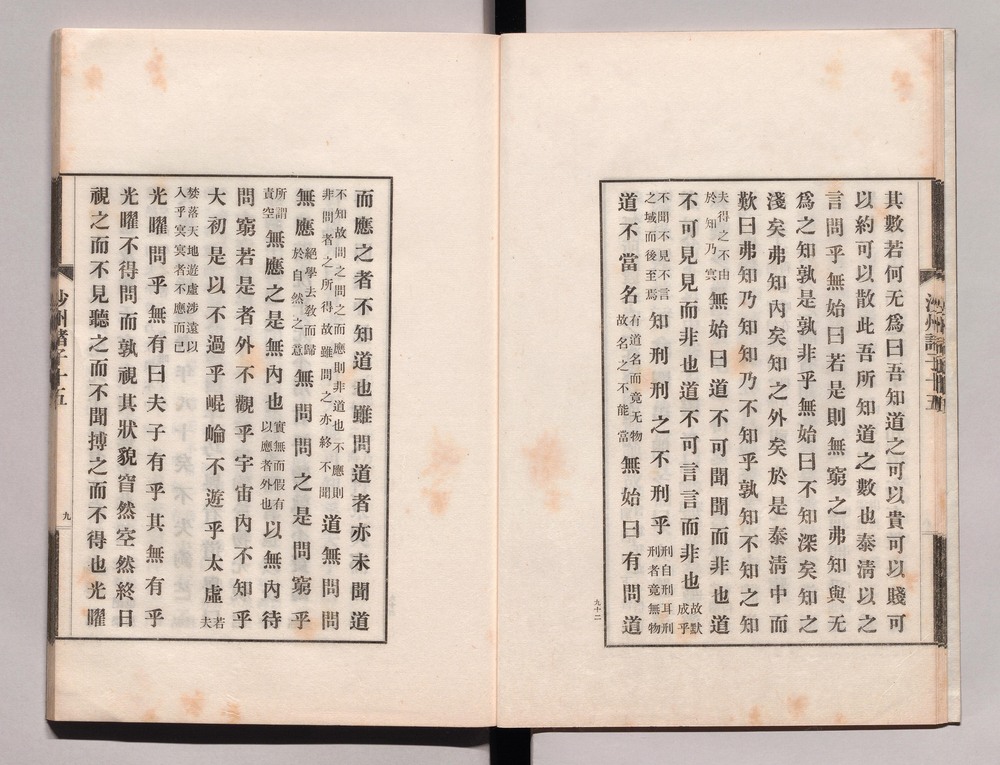 其數若何无爲曰吾知道之可以貴可以賤可
以約可以散此吾所知道之數也泰清以之
言問乎無始曰若是則無窮之弗知與无
爲之知孰是孰非乎無始曰不知深矣知之
淺矣弗知內矣知之外矣於是泰清中而
歎曰弗知乃知乎知乃不知乎孰知不知之知
夫得之不由於知乃冥無始曰道不可聞聞而非也道
不可見見而非也道不可言言而非也故默成乎
不聞不見不言之域而後至焉知刑刑之不刑乎刑自刑耳刑刑者竟無物
道不當名有道名而竟无物故名之不能當無始曰有問道
九十二
沙州諸子十五
而應之者不知道也雖問道者亦未聞道
不知故問之問之而應則非道也不應則非問者之所得故雖問之亦終不聞道無問問
無應絕學去教而歸於自然之意無問問之是問窮乎
所謂責空無應之是無內也實無而假有以應者外也以無內待
問窮若是者外不觀乎宇宙內不知乎
大初是以不過乎崐崘不遊乎太虛若夫
婪落天地遊虛涉遠以入乎冥冥者不應而已
光曜問乎無有曰夫子有乎其無有乎
光曜不得問而孰視其狀貌窅然空然終日
視之而不見聽之而不聞搏之而不得也光曜
沙州諸子十五
九